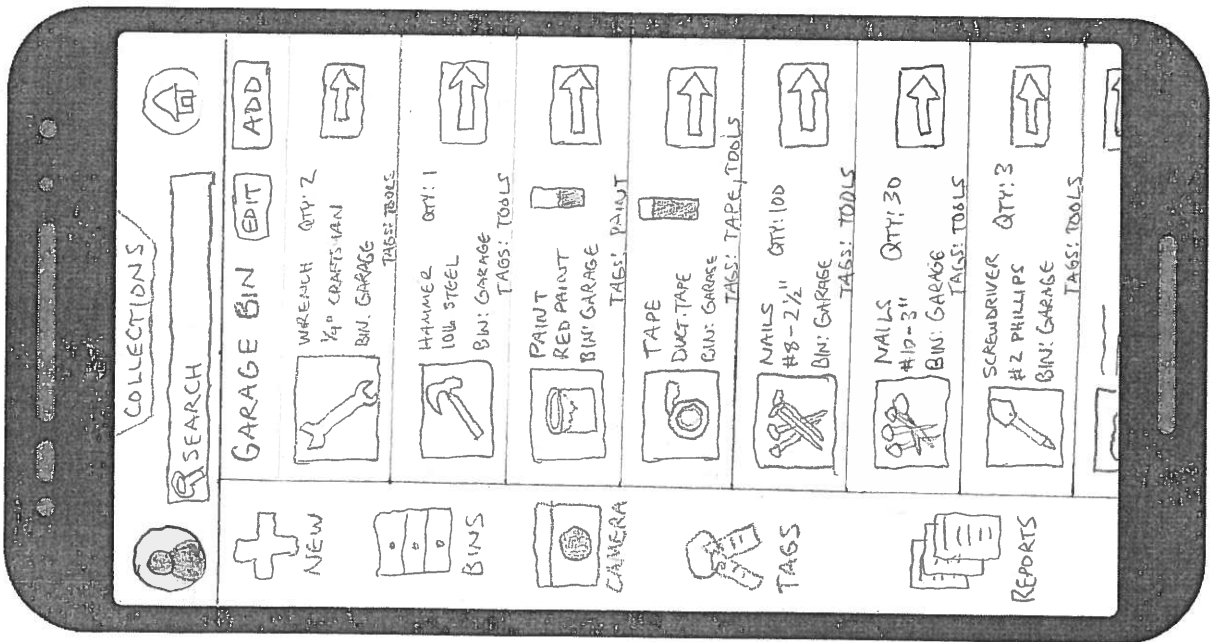 COLLECTIONS
SEARCH
GARAGE BIN
EDIT
ADD
NEW
BINS
CAMERA
TAGS
REPORTS
WRENCH QTY: 2
1/4" CRAFTSMAN
BIN: GARAGE
TAGS: TOOLS
HAMMER QTY: 1
10lb STEEL
BIN: GARAGE
TAGS: TOOLS
PAINT
RED PAINT
BIN: GARAGE
TAGS: PAINT
TAPE
DUCT TAPE
BIN: GARAGE
TAGS: TAPE, TOOLS
NAILS QTY: 100
#8-2½"
BIN: GARAGE
TAGS: TOOLS
NAILS QTY: 30
#10-3"
BIN: GARAGE
TAGS: TOOLS
SCREWDRIVER QTY: 3
#2 PHILLIPS
BIN: GARAGE
TAGS: TOOLS